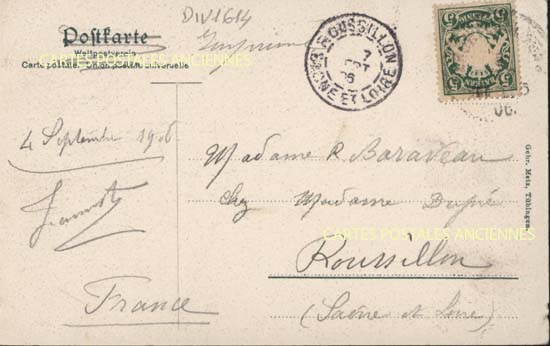 DIV1614
Postkarte
Weltpostverein
Carte postale. Union postale universelle
Imprimé
ROUSSILLON
SAONE ET LOIRE
7
06
BAYERN
5
06.
4 Septembre 1906
Madame R Baraveau
chez Madame Dupré
Roussillon
(Saône et Loire)
France
CARTES POSTALES ANCIENNES
CARTES POSTALES ANCIENNES
Gebr. Metz, Tübingen